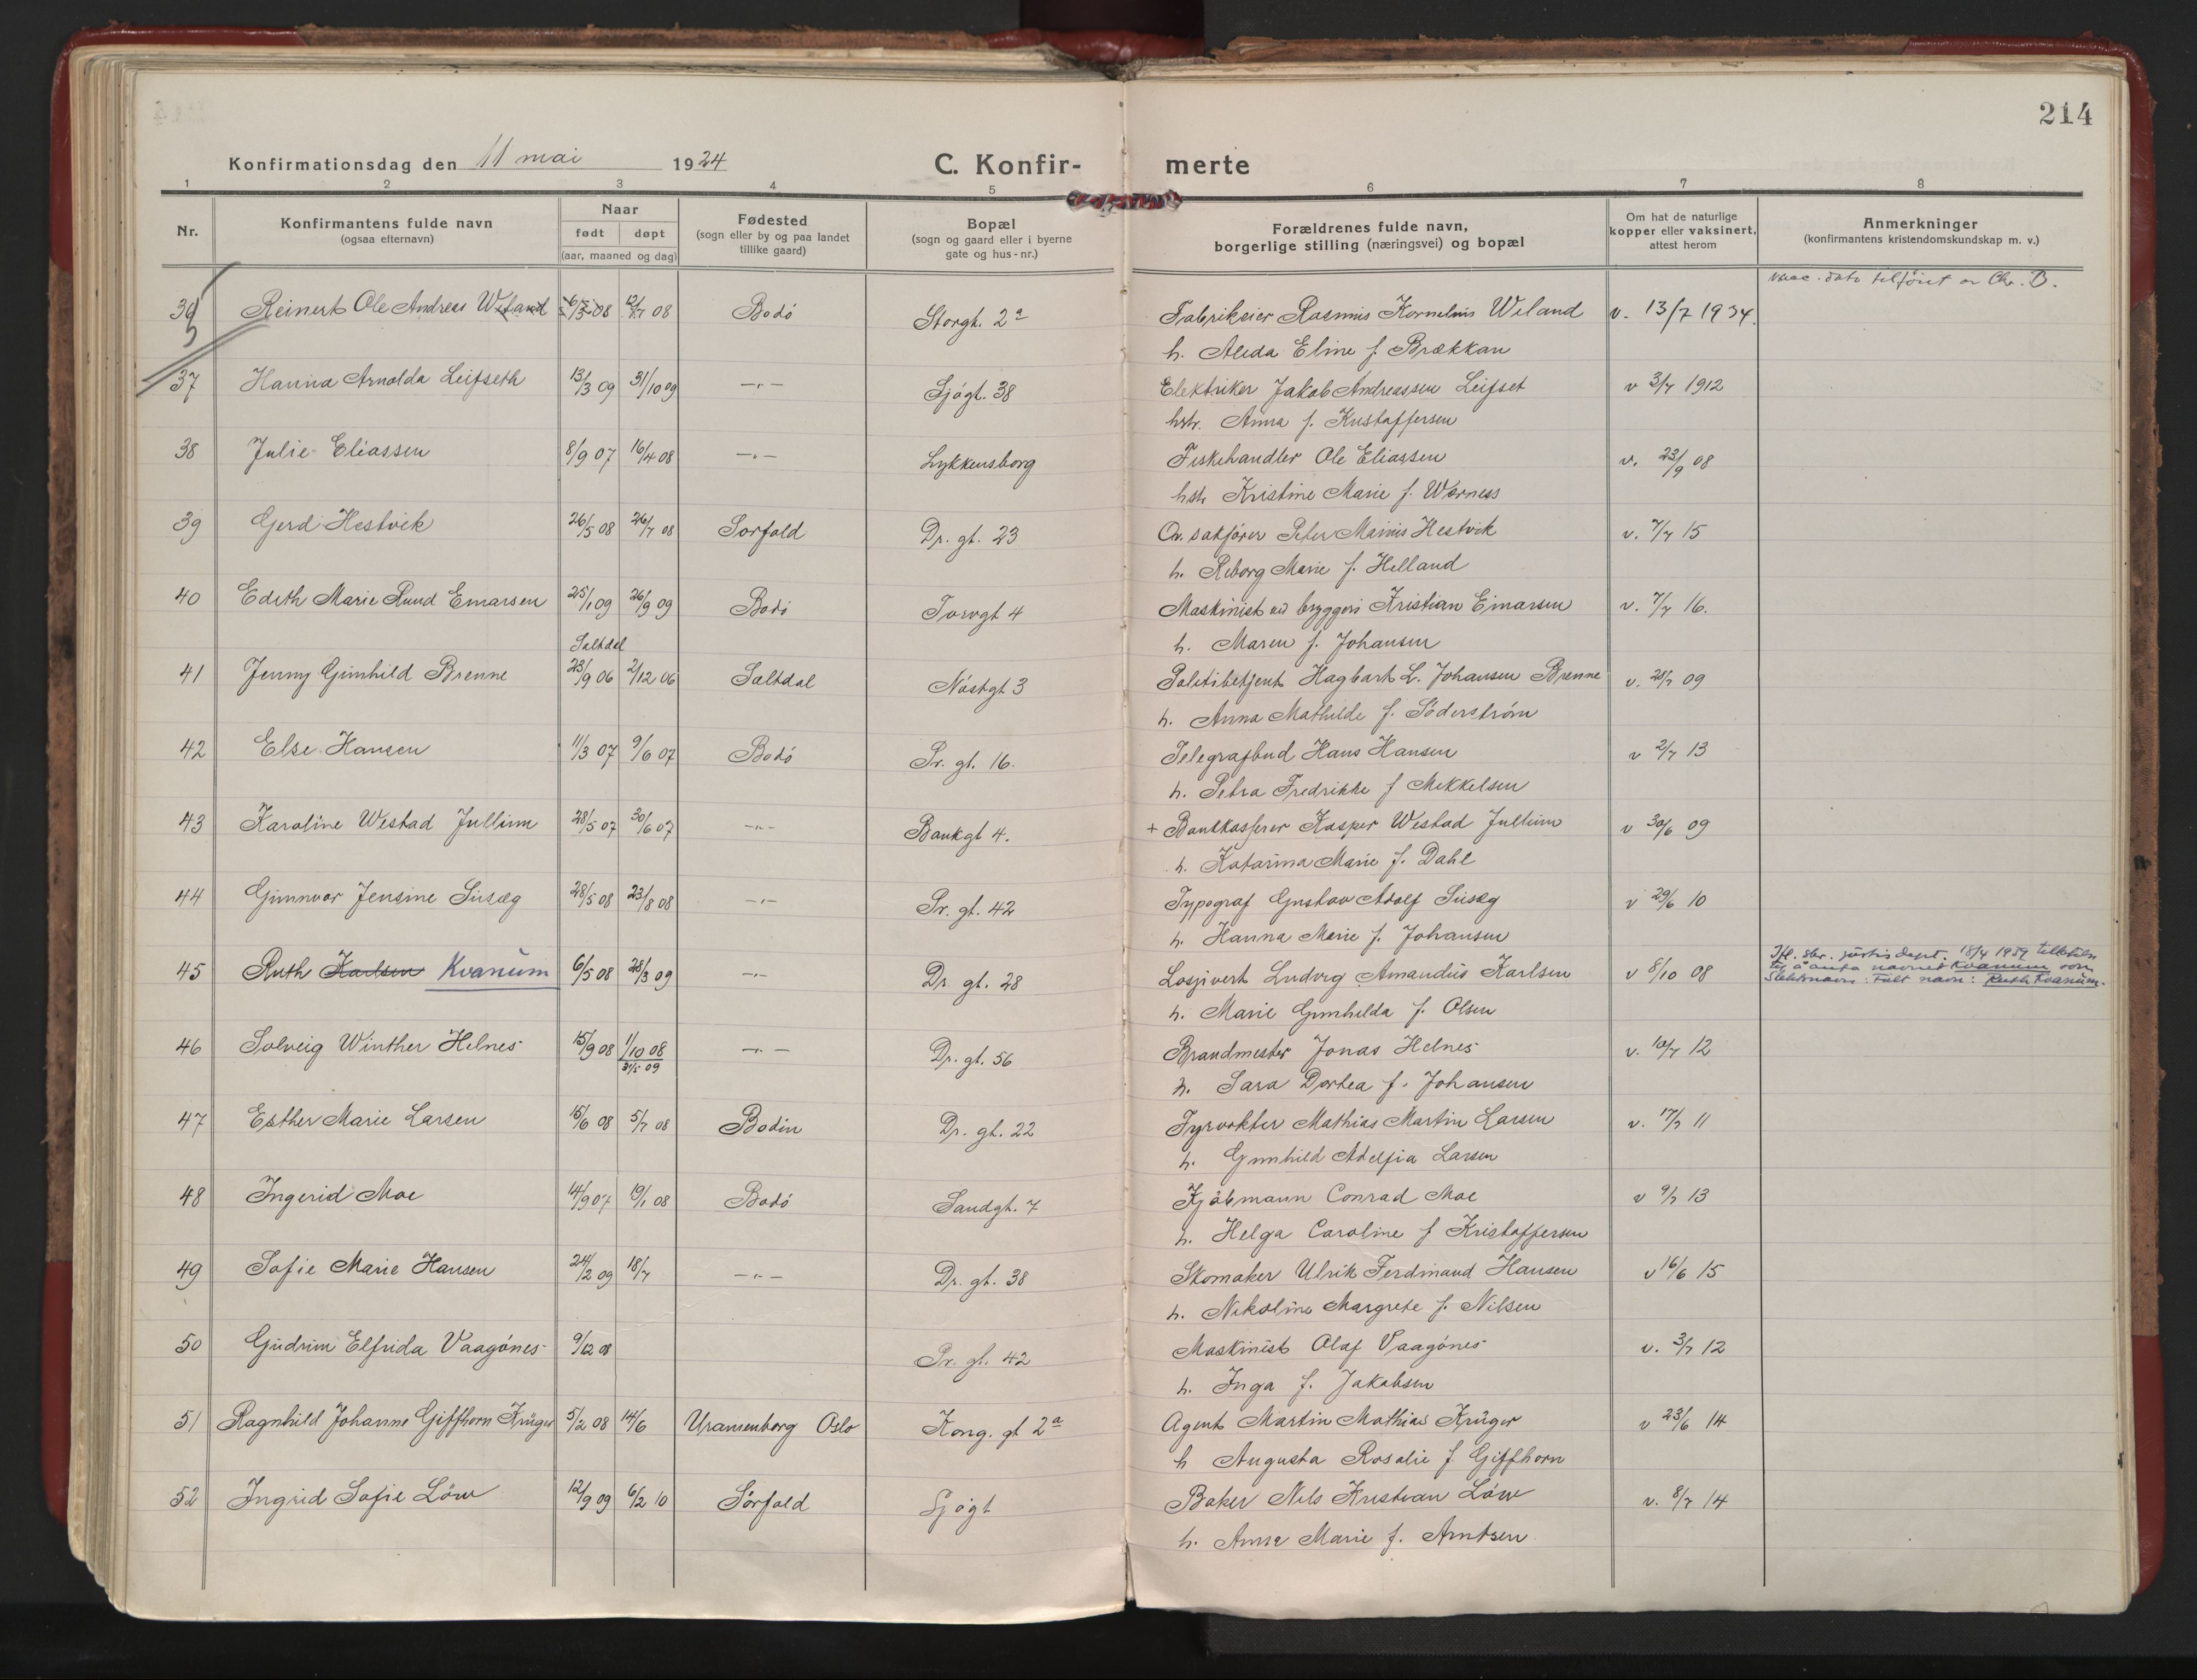 214
Konfirmationsdag den 11 mai 1924
C. Konfirmerte
1 2 3 4 5 6 7 8
Nr. | Konfirmantens fulde navn (ogsaa efternavn) | Naar født døpt (aar, maaned og dag) | Fødested (sogn eller by og paa landet tillike gaard) | Bopæl (sogn og gaard eller i byerne gate og hus-nr.) | Forældrenes fulde navn, borgerlige stilling (næringsvei) og bopæl | Om hat de naturlige kopper eller vaksinert, attest herom | Anmerkninger (konfirmantens kristendomskundskap m. v.)
vacc. dato tilføiet av Chr. B.
36 Reinert Ole Andreas Weland 08 12/7 08 Bodó Storgt. 2a Fabrikeier Rasmus Kornelius Weland v. 13/7 1934.
h. Aleda Eline f. Brækkan
37 Hanna Arnolda Leifseth 13/3 09 31/10 09 —"— Sjógt. 38 Elektriker Jakob Andreassen Leifset v 3/7 1912
hstr. Anna f. Kristoffersen
38 Julie Eliassen 8/9 07 16/4 08 —"— Lykkensborg Fiskehandler Ole Eliassen v. 23/9 08
hstr Kristine Marie f. Wærness
39 Gerd Hestvik 26/5 08 26/7 08 Sorfold Dr. gt. 23 Ov. sakfører Peter Hestvik v. 7/7 15
h. Marie f. Helland
40 Edith Marie Ruud Einarsen 25/1 09 26/9 09 Bodó Torvgt 4 Maskinist ved bryggeri Kristian Einarsen v. 7/7 16.
h. Maren f. Johansen
Saltdal
41 Jenny Gunhild Brenne 23/9 06 2/12 06 Saltdal Nóstgt 3 Politibetjent Hagbart L. Johansen Brenne v. 28/7 09
h. Anna Mathilde f. Söderström
42 Else Hansen 11/3 07 9/6 07 Bodó Pr. gt. 16. Telegrafbud Hans Hansen v 2/7 13
h. Petra Fredrikke f Mikkelsen
43 Karoline Westad Jullum 28/5 07 30/6 07 —"— Bankgt 4. + Bankkasserer Kasper Westad Jullum v 30/6 09
h. Katarina Marie f. Dahl
44 Gunnvor Jensine Siisæg 28/5 08 23/8 08 —"— Pr. gt. 42 Typograf Gustav Adolf Siisæg v 29/6 10
h. Hanna Marie f. Johansen
45 Ruth Karlsen Kvanum 6/5 08 28/3 09 —"— Dr. gt. 28 Losjivert Ludvig Amandus Karlsen v 8/10 08
Ifl. skr. justisdept. 18/4 1959 tillatelse
til å anta navnet Kvanum som
slektsnavn: Fullt navn: Ruth Kvanum.
h. Marie Gunhilda f. Olsen
46 Solveig Winther Helnes 15/9 08 1/10 08 —"— Dr. gt. 56 Brandmester Jonas Helnes v. 10/7 12
31/5 09
h. Sara Dortea f. Johansen
47 Esther Marie Larsen 15/6 08 5/7 08 Bodin Dr. gt. 22 Fyrvokter Mathias Martin Larsen v. 17/7 11
h. Gunhild Adelfia Larsen
48 Ingerid Moe 14/9 07 19/1 08 Bodó Sandgt. 7 Kjóbmann Conrad Moe v 9/7 13
h. Helga Caroline f Kristoffersen
49 Sofie Marie Hansen 24/2 09 18/7 —"— Dr. gt. 38 Skomaker Ulrik Ferdinand Hansen v 16/6 15
h. Nikoline Margrete f. Nilsen
50 Gudrun Elfrida Vaagónes 9/12 08 Pr. gt. 42 Maskinist Olaf Vaagónes v. 3/7 12
h. Inga f. Jakobsen
51 Ragnhild Johanne Giffhorn Krüger 5/2 08 14/6 Uranienborg Oslo Kong. gt 2a Agent Martin Mathias Krüger v 23/6 14
h Augusta Rosalie f Giffhorn
52 Ingrid Sofie Löw 12/9 09 6/2 10 Sórfold Sjógt Baker Nils Kristian Löw v. 8/7 14
h. Anna Marie f. Arntsen